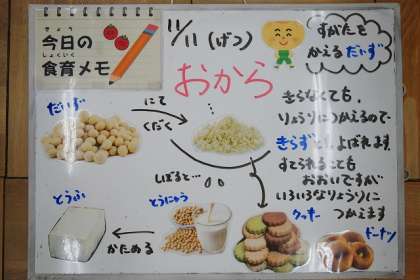 きょう
今日の
しょくいく
食育メモ
11/11 (げつ)
すがたを
かえるだいず
おから
だいず
にて
くだく
きらなくても、
りょうりにつかえるので
きらずとよばれます。
すてられることも
おおいですが
いろいろなりょうりに
つかえます
しぼると…
とうふ
かためる
とうにゅう
クッキー
ドーナツ